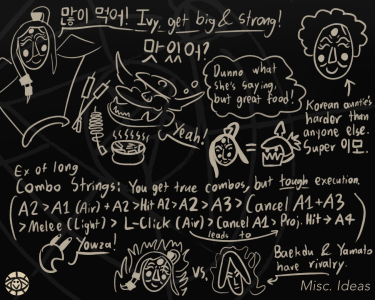 많이 먹어! Ivy, get big & strong!
맛있어?
Dunno what
she's saying,
but great food!
Yeah!
Korean auntie's
harder than
anyone else.
Super 이모.
=
Ex of long
Combo Strings: You get true combos, but tough execution.
(A2 > A1 (Air) + A2 > Hit A2 > A2 > A3 > (Cancel A1 + A3
> Melee (Light) > L-Click (Air) > Cancel A1 > Proj. Hit → A4)
leads to
Yowza!
VS.
Baekdu & Yamato
have rivalry.
Misc. Ideas